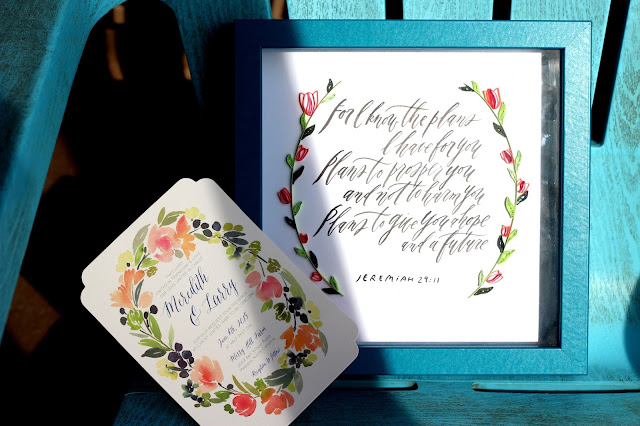 For I know the plans
I have for you
Plans to prosper you
and not to harm you
Plans to give you hope
and a future
JEREMIAH 29:11
Meredith
& Larry
2015
Merry Hill Farm